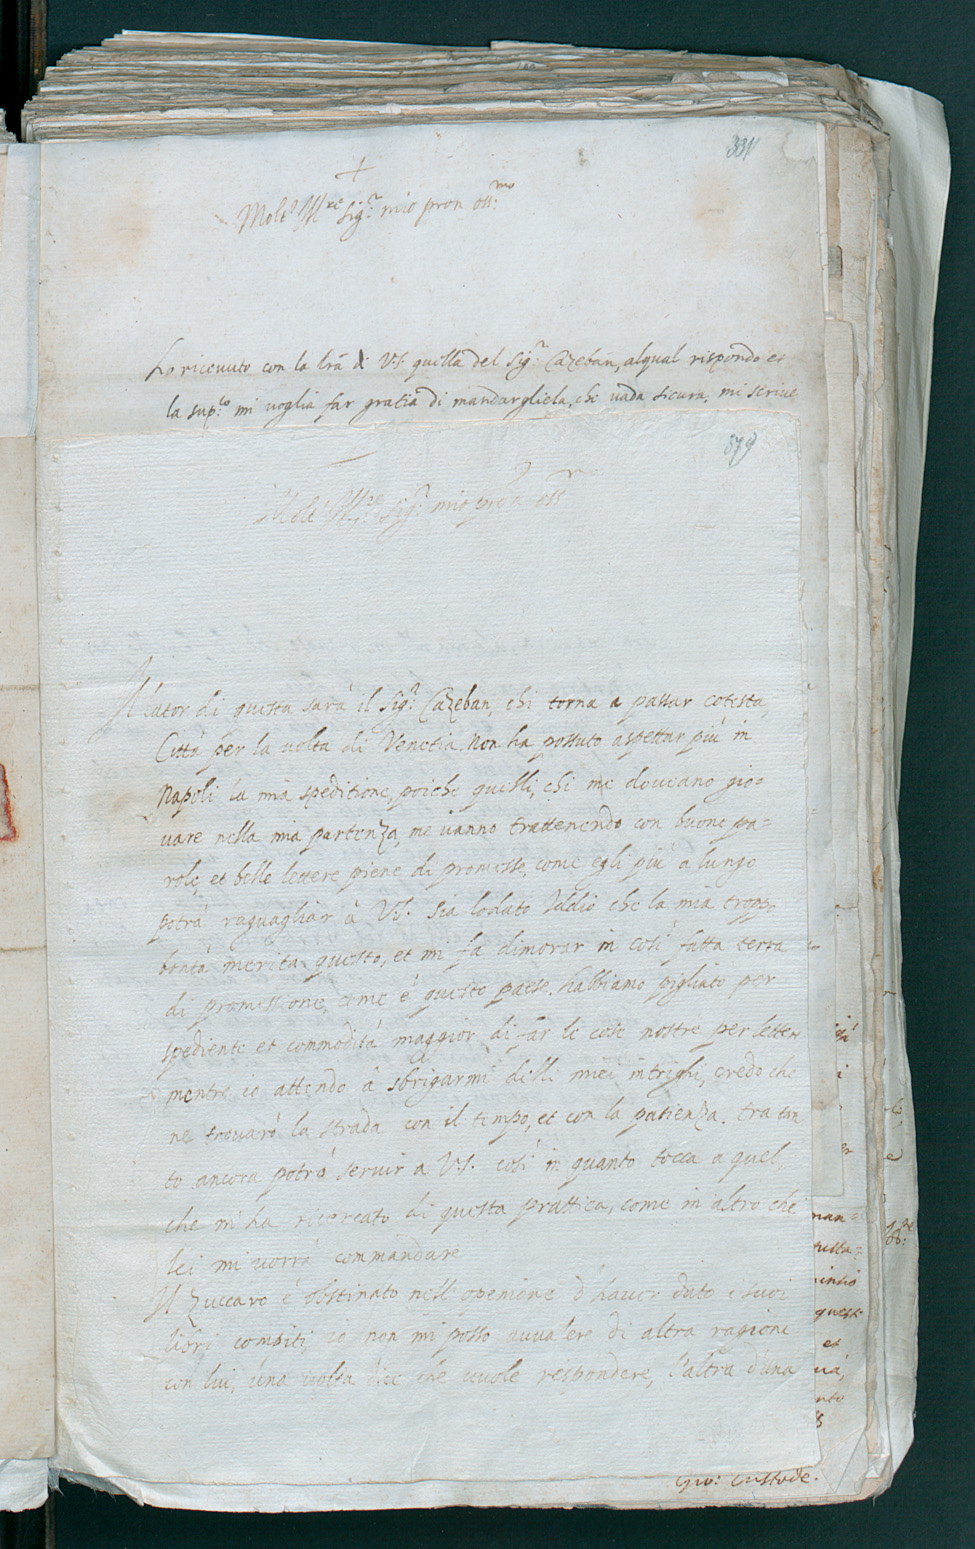 331
+
Molto Ill.re Sig.r mio pron oss.mo
Ho ricevuto con la lrã di V.S. quella del Sig.r Cazeban, al qual rispondo et
la sup.co mi voglia far gratia di mandargliela, che vada sicura, mi scrive
379
Molt' Ill.re Sig.r mio prõn oss.r
Il lator di questa sarà il Sig.r Cazeban, chi torna a passar cotesta
Città per la volta di Venetia. Non ha possuto aspettar più in
Napoli la mia speditione, poiche quelli, chi me doveano gio=
vare nella mia partenza, me vanno trattenendo con buone pa=
role, et belle lettere piene di promesse, come egli più a lungo
potrà raguagliar à V.S. Sia lodato Iddio che la mia troppo
bontà merita questo, et mi fa dimorar in così fatta terra
di promissione, come è questo paese. Habbiamo pigliato per
spediente et commodità maggior di far le cose nostre per lettere
mentre io attendo à sbrigarmi delli miei intrighi, credo che
ne trovarò la strada con il tempo, et con la patienza. tra tan
to ancora potrò servir a V.S. così in quanto tocca a quel
che m'ha ricercato di questa prattica, come in altro che
lei mi vorrà commandare
Il Zuccaro è obstinato nell'openione d'haver dato i suoi
libri compiti, io non mi posso avvalere di altra ragione
con lui, una volta dice che vuole respondere, l'altra d'una
man=
questi
et
Gio: Custode.